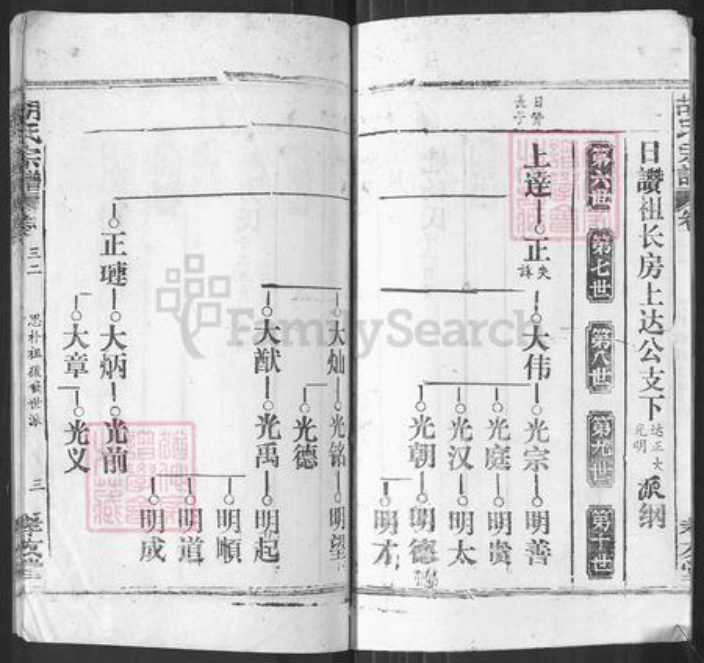 胡氏宗譜
卷
日讃祖长房上达公支下 达正大光明 派纲
第六世 第七世 第八世 第九世 第十世
日讃長子
上達 正 失諱 大伟 光宗 明善
光庭 明贵
光汉 明太
光朝 明德
明才
大灿 光铭 明望
光德
大猷 光禹 明起
明順
明道
明成
正璉 大炳 光前
大章 光义
胡氏宗譜
卷
三二
思朴祖後裔世派
三
FamilySearch